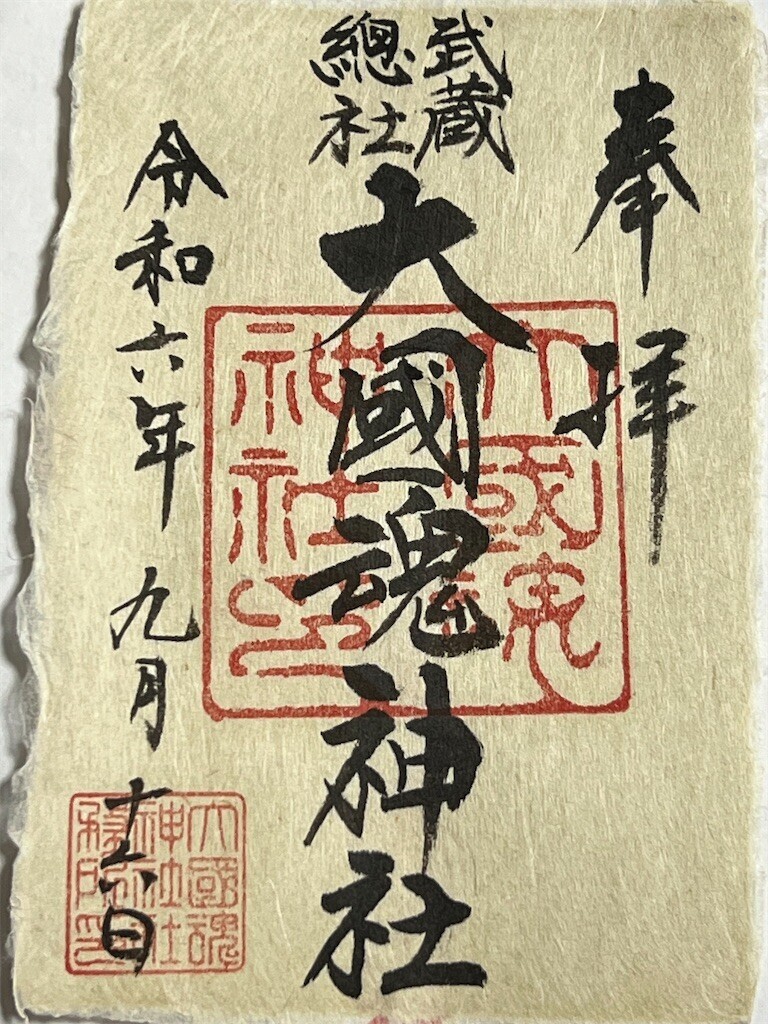 奉拝
武蔵
總社
大國魂神社
令和六年 九月十六日
大國魂
神社印
大國魂
神社社
務所印